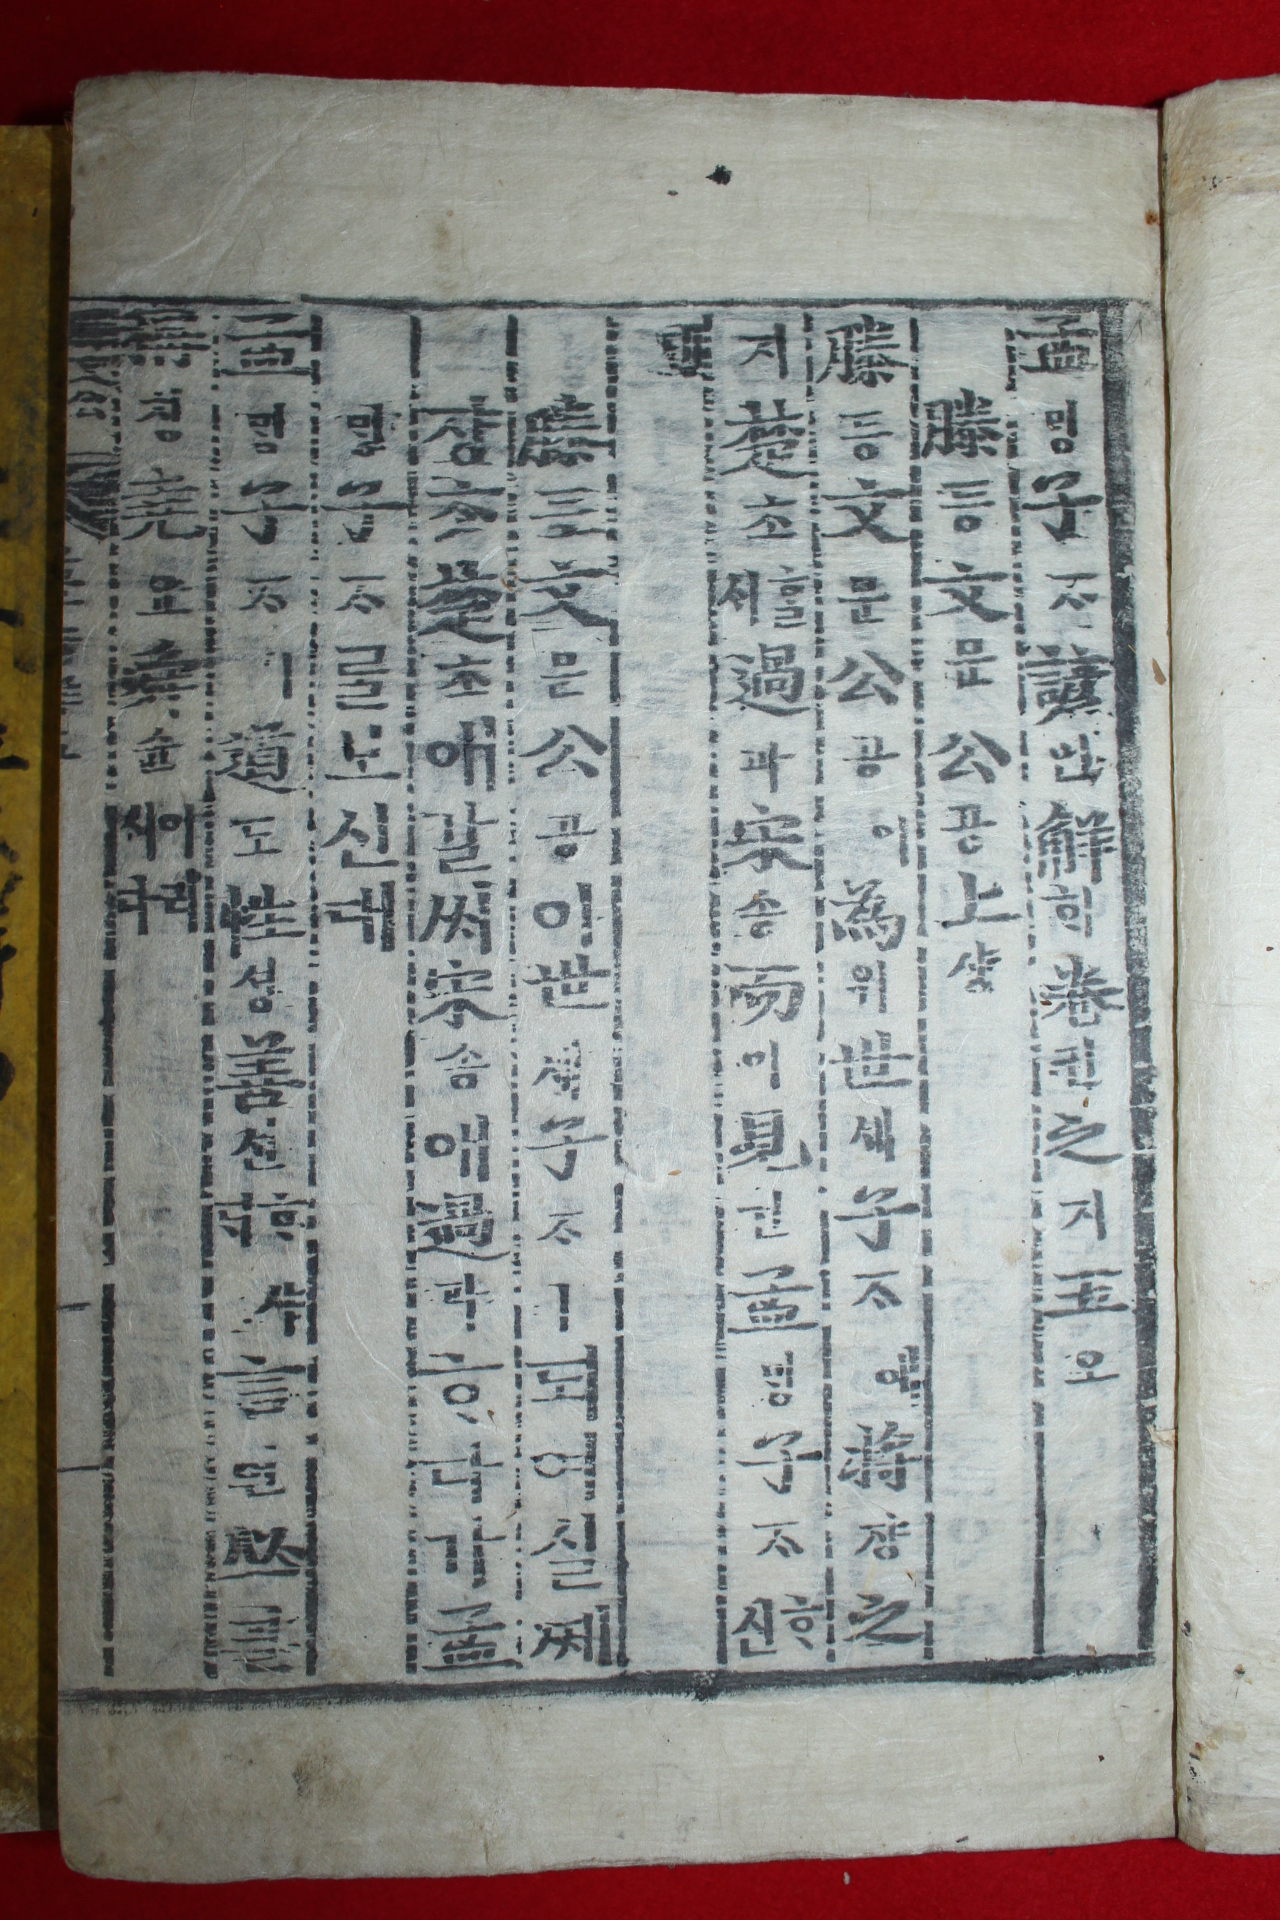 孟밍子ᄌᆞ諺언解ᄒᆡ卷권之지五오
滕등文문公공上샹
滕등文문公공이爲위世셰子ᄌᆞ애將쟝之
지楚초ᄒᆞᆯ시過과宋송而이見견孟밍子ᄌᆞᄒᆞ신
대
滕등文문公공이世셰子ᄌᆞㅣ되여실
쟝ᄎᆞ楚초애갈씨宋송애過과ᄒᆞ다가孟
밍子ᄌᆞᄅᆞᆯ보신대
孟밍子ᄌᆞㅣ道도性셩善션ᄒᆞ샤言언
稱칭堯요舜슌이러시다